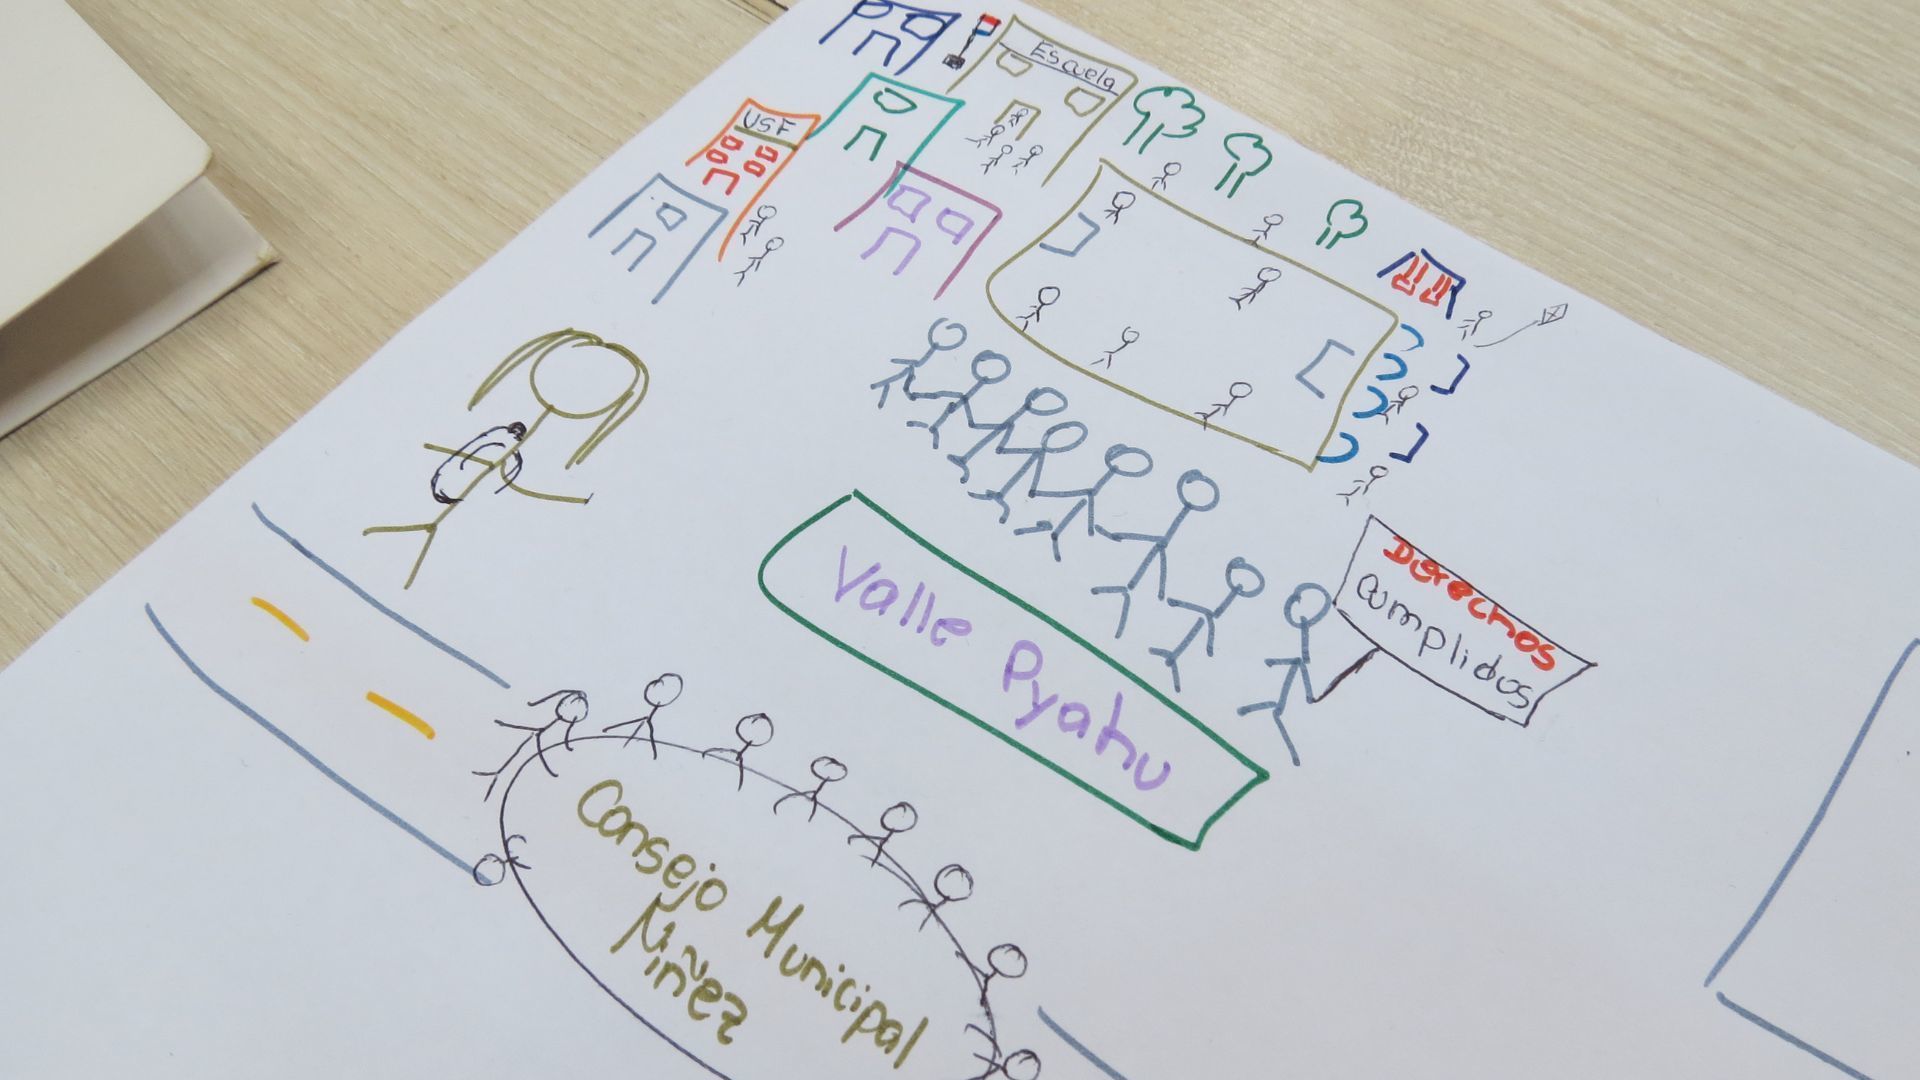 Escuela
USF
Derechos
cumplidos
Valle Pyahu
Consejo Municipal
Niñez